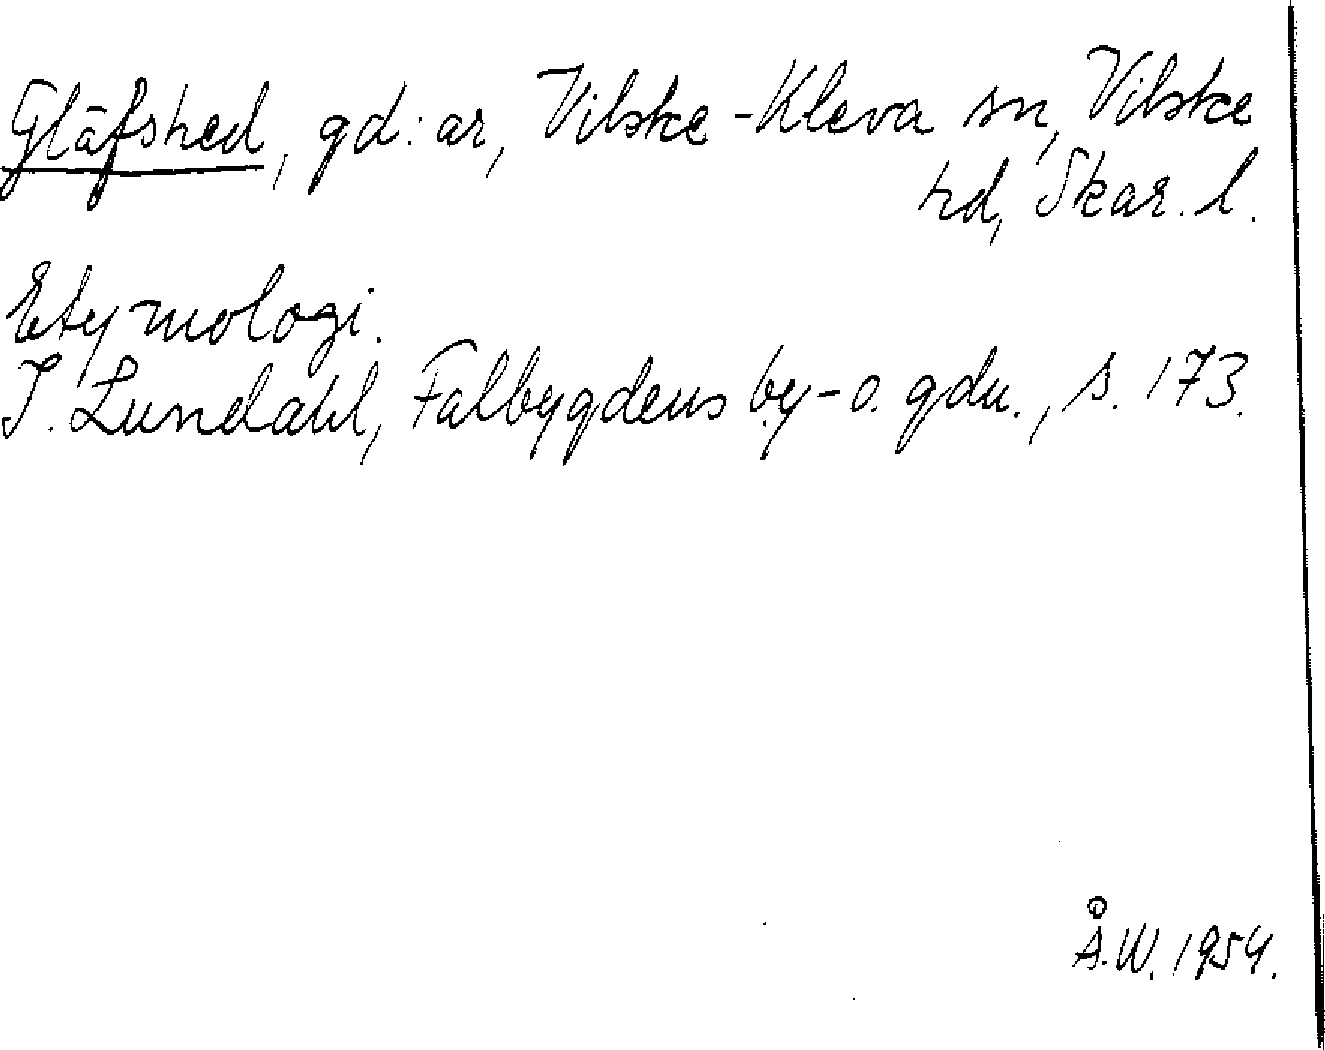 Gläfshed, gd:ar, Vilske-Kleva sn, Vilske
hd, Skar. l.
Etymologi.
I. Lundahl, Falbygdens by- o. gdn., s. 173.
Å.W. 1954.